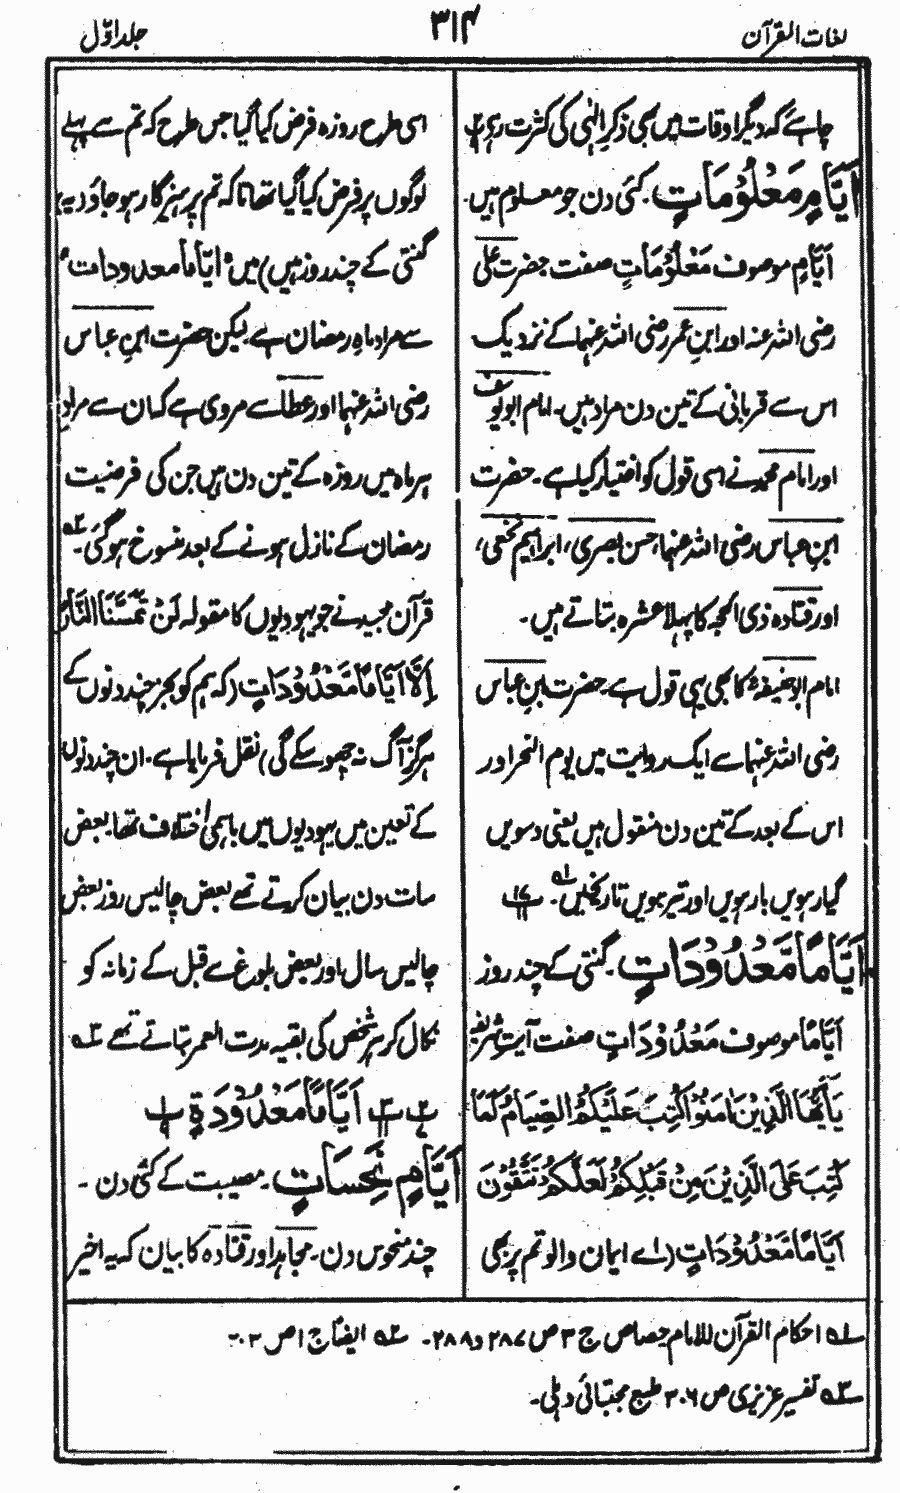 لغات القرآن
۳۱۴
جلد اوّل
چاہئے کہ دیگر اوقات میں بھی ذکرِ الٰہی کی کثرت رہے
اَیَّامٍ مَّعْلُوْمَاتٍ۔ کئی دن جو معلوم ہیں۔
اَیَّامٍ موصوف مَعْلُوْمَاتٍ صفت حضرت علی
رضی اللہ عنہ اور ابنِ عمر رضی اللہ عنہما کے نزدیک
اس سے قربانی کے تین دن مراد ہیں۔ امام ابویوسف
اور امام محمد نے اسی قول کو اختیار کیا ہے۔ حضرت
ابنِ عباس رضی اللہ عنہما، حسن بصری، ابراہیم نخعی،
اور قتادہ ذی الحجہ کا پہلا عشرہ بتاتے ہیں۔
امام ابوحنیفہؒ کا بھی یہی قول ہے۔ حضرت ابنِ عباس
رضی اللہ عنہما سے ایک روایت میں یوم النحر اور
اس کے بعد کے تین دن منقول ہیں یعنی دسویں
گیارہویں بارہویں اور تیرہویں تاریخیں۔ لہ
اَیَّامًا مَّعْدُوْدَاتٍ۔ گنتی کے چند روز
اَیَّامًا موصوف مَعْدُوْدَاتٍ صفت آیت شریفہ
یٰۤاَیُّهَا الَّذِیْنَ اٰمَنُوْا کُتِبَ عَلَیْکُمُ الصِّیَامُ کَمَا
کُتِبَ عَلَی الَّذِیْنَ مِنْ قَبْلِکُمْ لَعَلَّکُمْ تَتَّقُوْنَ
اَیَّامًا مَّعْدُوْدَاتٍ (اے ایمان والو تم پر بھی
اسی طرح روزہ فرض کیا گیا جس طرح کہ تم سے پہلے
لوگوں پر فرض کیا گیا تھا تاکہ تم پرہیزگار ہو جاؤ یہ
گنتی کے چند روز ہیں) میں اَیَّامًا معدودات
سے مراد ماہِ رمضان ہے۔ لیکن حضرت ابنِ عباس
رضی اللہ عنہما اور عطا سے مروی ہے کہ ان سے مراد
ہر ماہ میں روزہ کے تین دن ہیں جن کی فرضیت
رمضان کے نازل ہونے کے بعد منسوخ ہوگئی۔ ۲ہ
قرآن مجید نے جو یہودیوں کا مقولہ لَنْ تَمَسَّنَا النَّارُ
اِلَّاۤ اَیَّامًا مَّعْدُوْدَاتٍ (کہ ہم کو بجز چند دنوں کے
ہرگز آگ نہ چھو سکے گی) نقل فرمایا ہے۔ ان چند دنوں
کے تعین میں یہودیوں میں باہمی اختلاف تھا۔ بعض
سات دن بیان کرتے تھے بعض چالیس روز بعض
چالیس سال اور بعض بلوغ سے قبل کے زمانہ کو
نکال کر ہر شخص کی بقیہ مدت العمر بتاتے تھے ۳ہ
اَیَّامًا مَعْدُوْدَةٍ
اَیَّامٍ نَّحِسَاتٍ۔ مصیبت کے کئی دن۔
چند منحوس دن۔ مجاہد اور قتادہ کا بیان کہ یہ اخیر
۱ہ احکام القرآن للامام جصاص ج ۳ ص ۲۸۷ و ۲۸۸۔ ۲ہ ایضًا ج ۱ ص ۳۰۲
۳ہ تفسیر عزیزی ص ۳۰۶ طبع مجتبائی دہلی۔